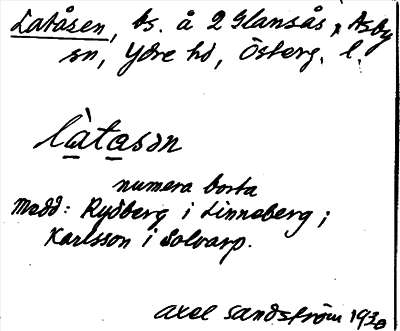 Latåsen, ts. å 2 Glansås, Asby
sn, Ydre hd, Österg. l.
làtasən
numera borta
Medd: Rydberg i Linneberg;
Karlsson i Solvarp.
Axel Sandström 1930